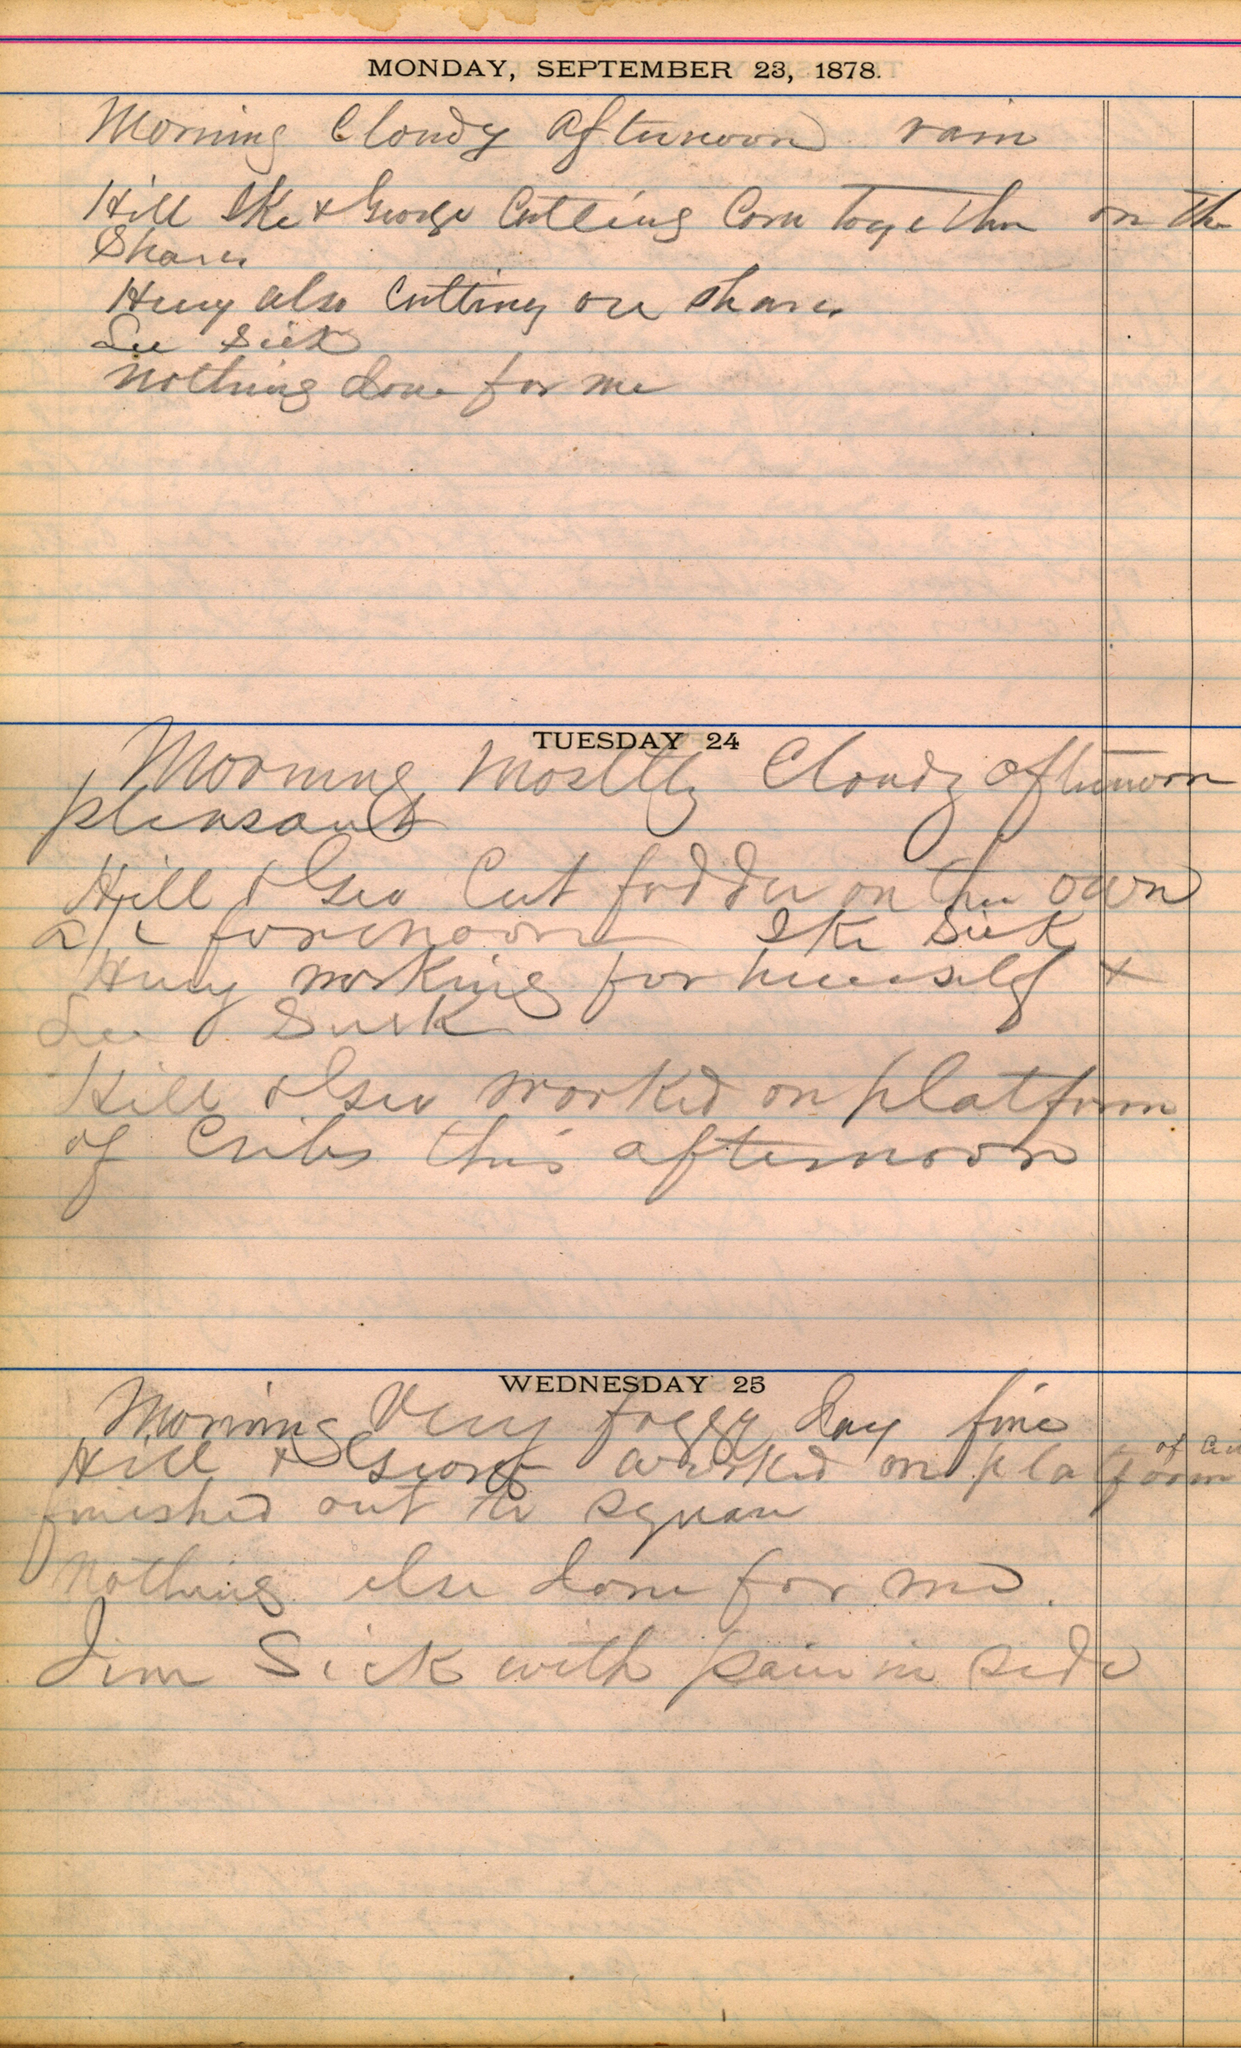 MONDAY, SEPTEMBER 23, 1878.
Morning Cloudy afternoon rain
Hill Ike & George Cutting Corn Together on the
Shares
Henry also Cutting on shares
Lee Sick
Nothing done for me
TUESDAY 24
Morning Mostly Cloudy afternoon
pleasant
Hill & Geo Cut fodder on their own
a/c forenoon Ike Sick
Henry working for himself &
Lee Sick
Hill & Geo worked on platform
of Cribs this afternoon
WEDNESDAY 25
Morning Very foggy day fine
of
Hill & George worked on platform
finished out the square
Nothing else done for me.
Jim Sick with pain in side